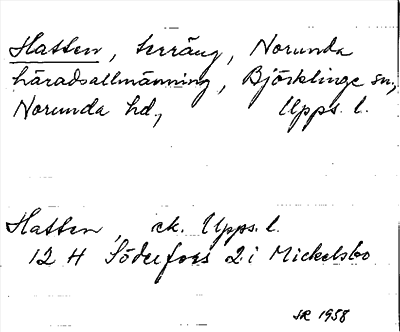 Hatten, terräng, Norunda
häradsallmänning, Björklinge sn,
Norunda hd, Upps. l.
Hatten, ek. Upps. l.
12 H Söderfors 2 i Mickelsbo
SR 1958